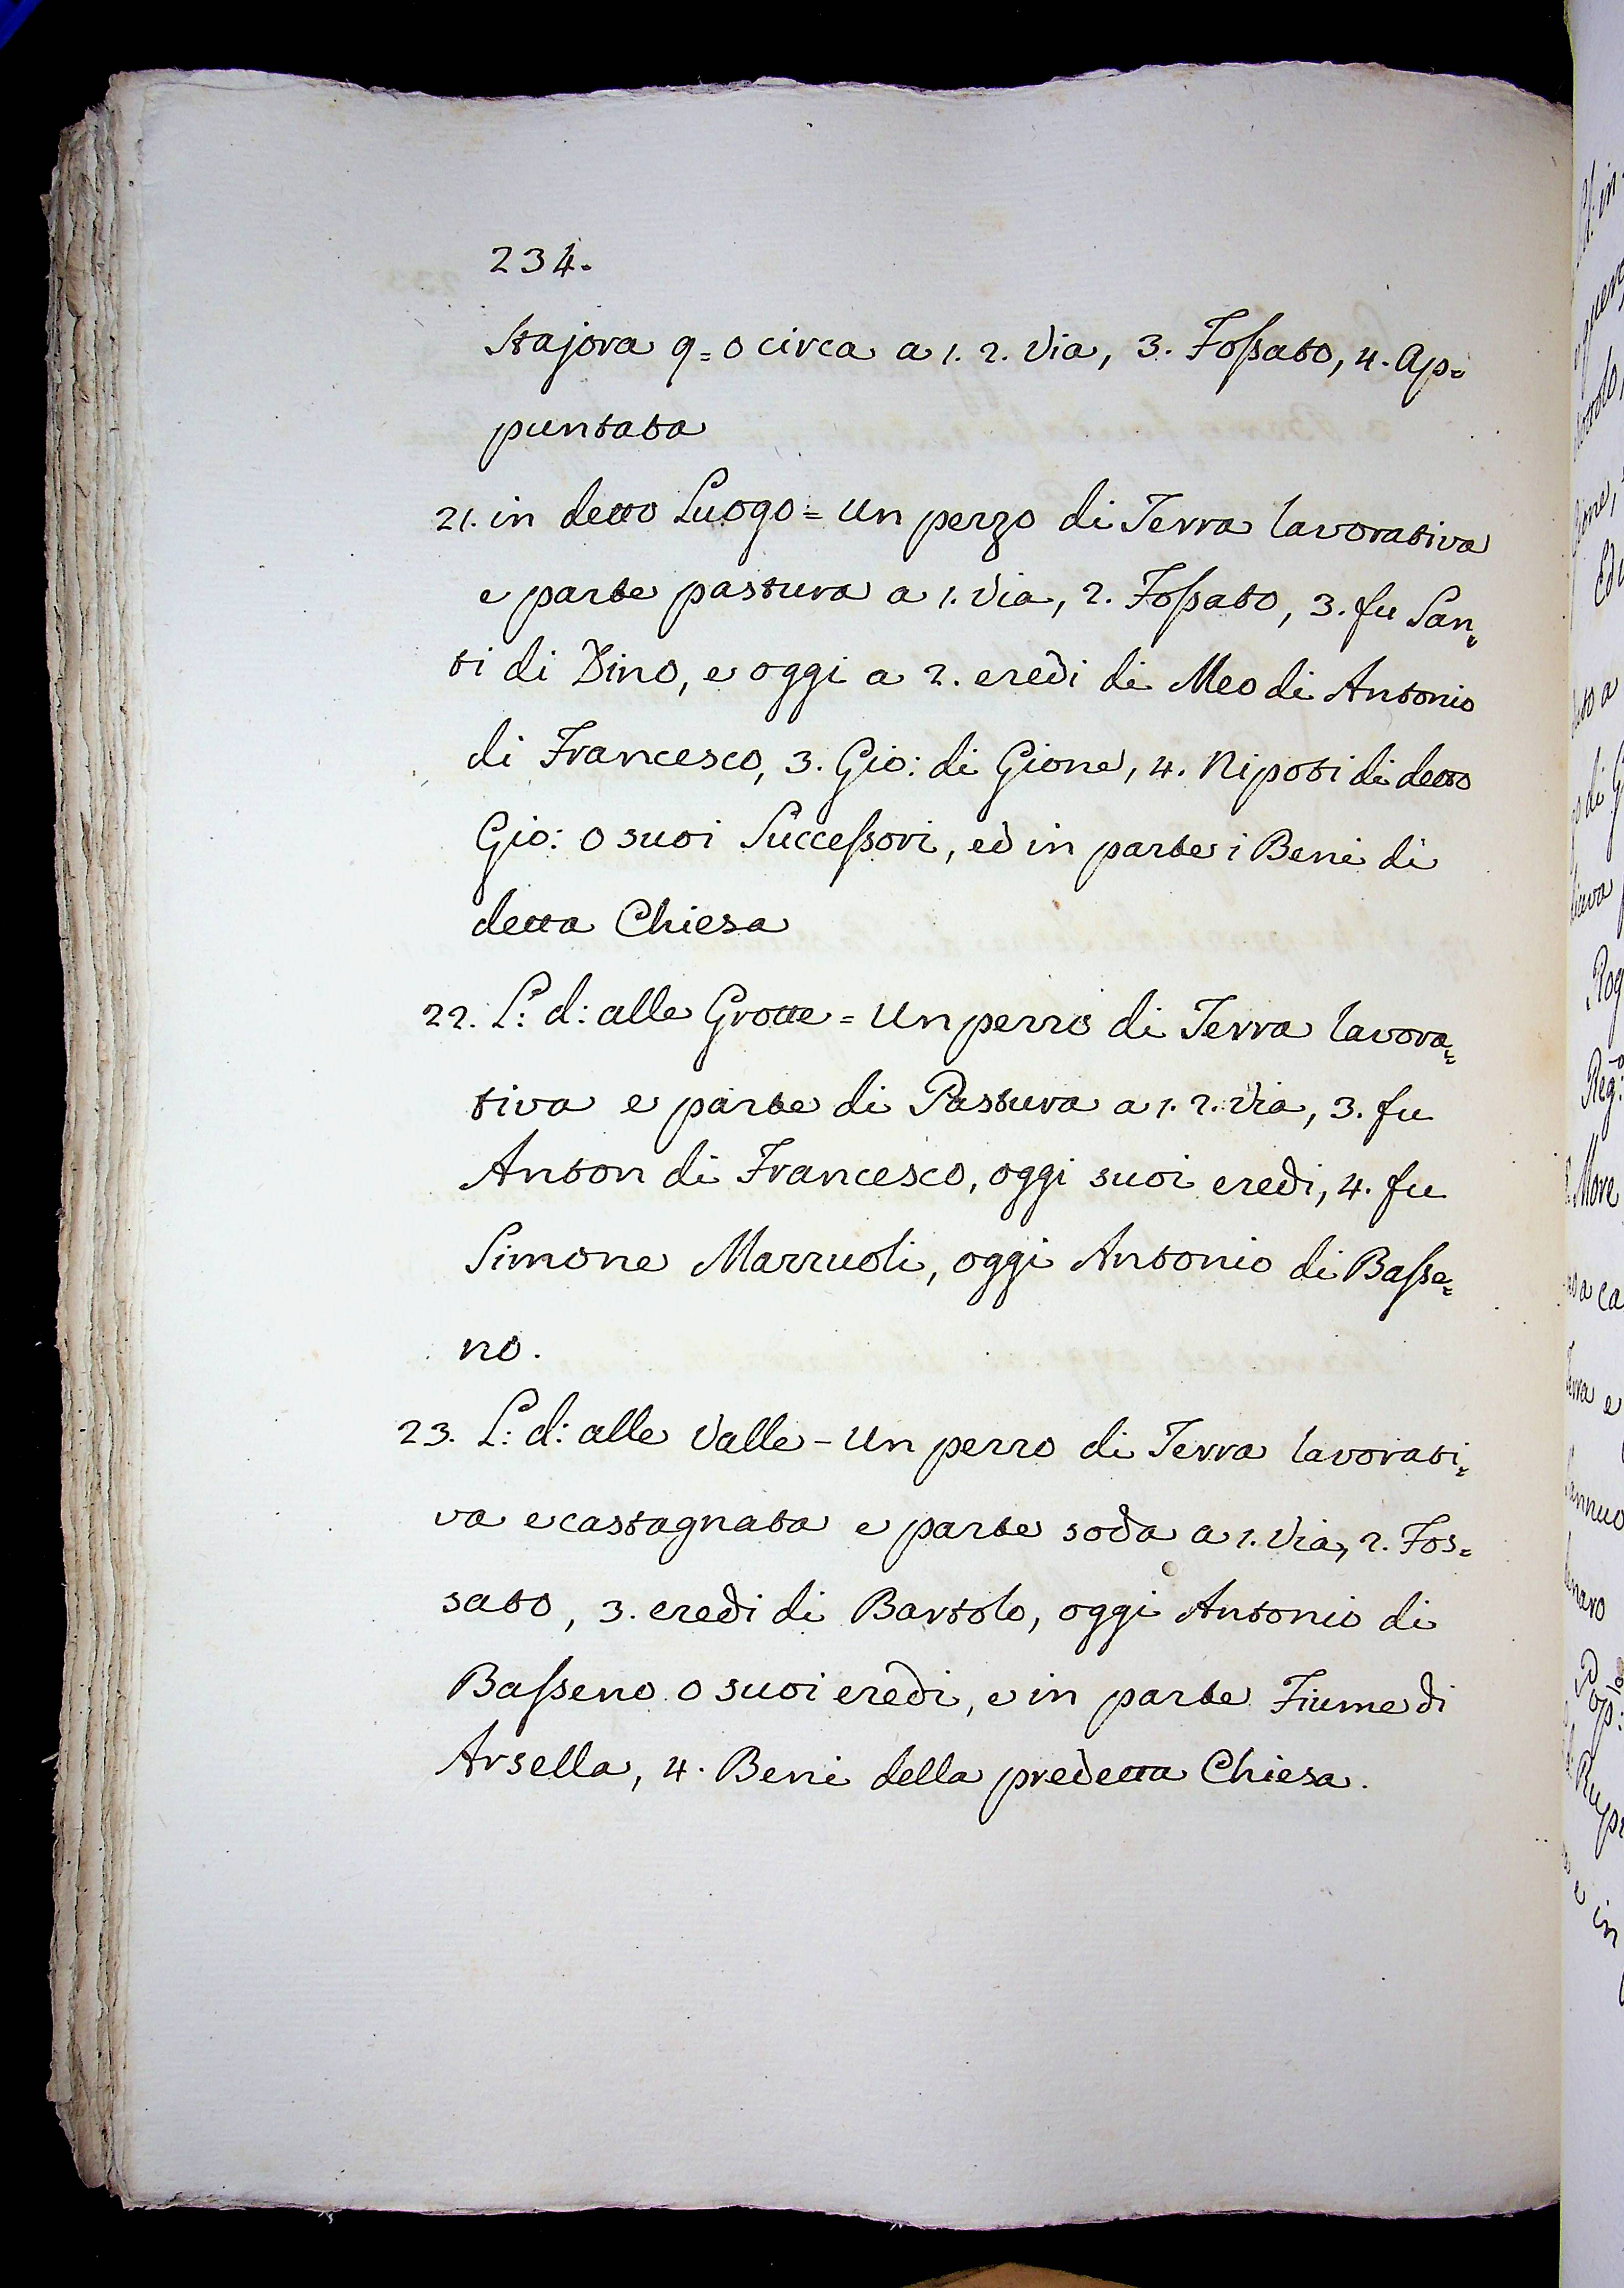 234.
Stajora 9=0 circa a 1. 2. Via, 3. Fossato, 4. Ap=
puntata
21. in detto Luogo = Un pezzo di Terra lavorativa
e parte pastura a 1. Via, 2. Fossato, 3. fu San=
ti di Dino, e oggi a 2. eredi di Meo di Antonio
di Francesco, 3. Gio: di Gione, 4. Nipoti di detto
Gio: o suoi Successori, ed in parte i Beni di
detta Chiesa
22. L: d: alle Grotte = Un pezzo di Terra lavora=
tiva e parte di Pastura a 1. 2. Via, 3. fu
Anton di Francesco, oggi suoi eredi, 4. fu
Simone Mazzuoli, oggi Antonio di Basse=
no.
23. L: d: alle Valle - Un pezzo di Terra lavorati=
va e castagnata e parte soda a 1. Via, 2. Fos=
sato, 3. eredi di Bartolo, oggi Antonio di
Basseno o suoi eredi, e in parte Fiume di
Arsella, 4. Beni della predetta Chiesa.